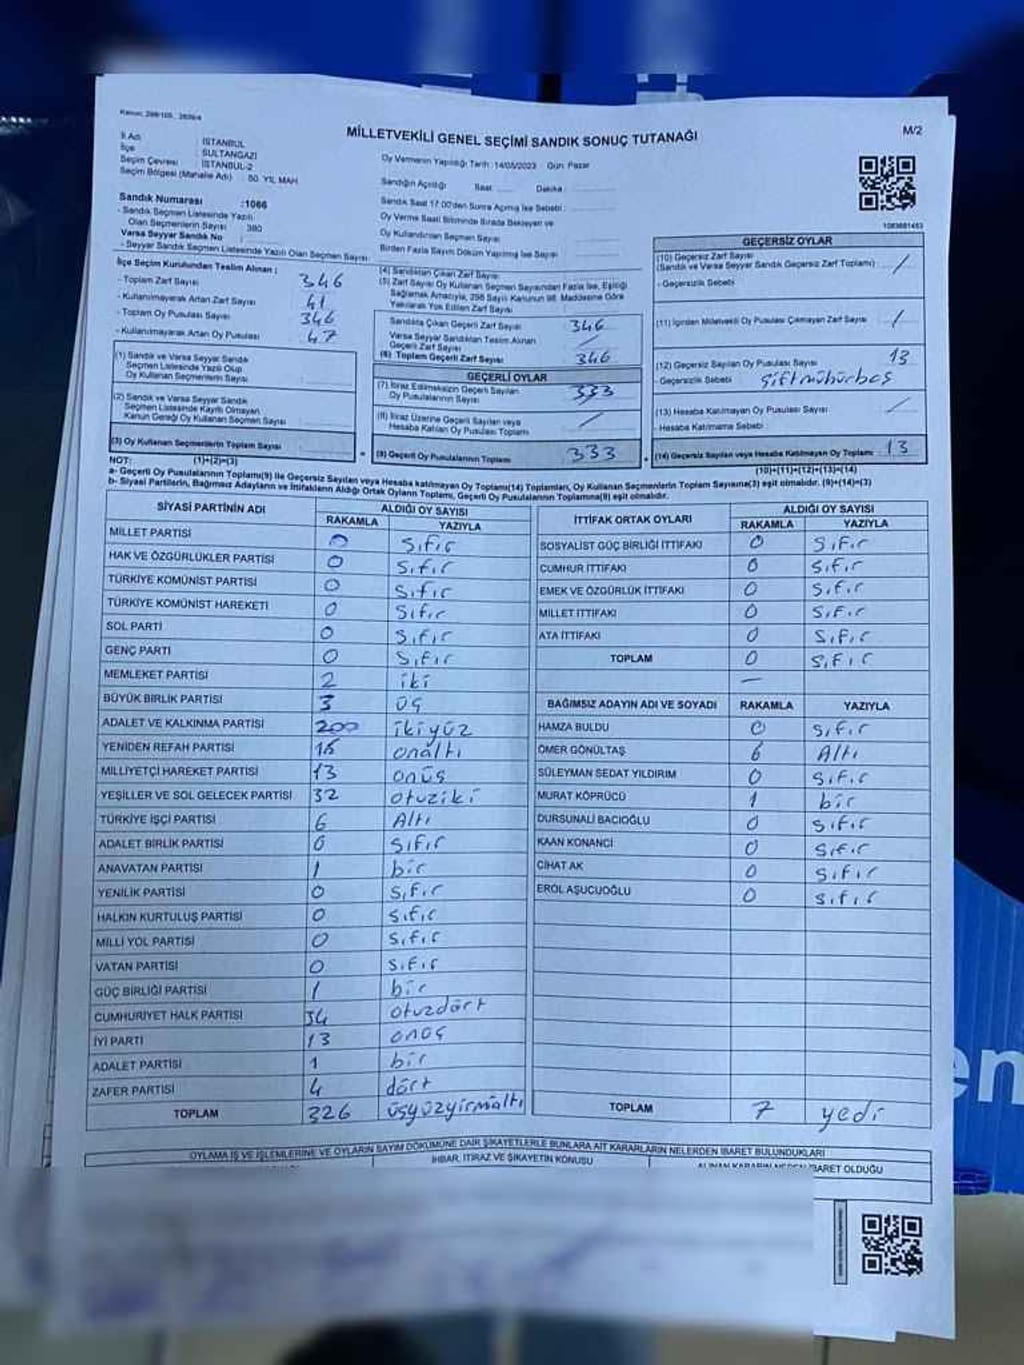 MİLLETVEKİLİ GENEL SEÇİMİ SANDIK SONUÇ TUTANAĞI
M/2
İl Adı : İSTANBUL
İlçe : SULTANGAZİ
Seçim Çevresi : İSTANBUL-2
Seçim Bölgesi (Mahalle Adı) : 50. YIL MAH
Sandık Numarası :1066
- Sandık Seçmen Listesinde Yazılı
Olan Seçmenlerin Sayısı : 380
Varsa Seyyar Sandık No :
- Seyyar Sandık Seçmen Listesinde Yazılı Olan Seçmen Sayısı:
Oy Vermenin Yapıldığı Tarih :14/05/2023 Gün: Pazar
Sandığın Açıldığı Saat ..... Dakika
Sandık Saat 17.00'den Sonra Açılmış İse Sebebi :
Oy Verme Saati Bitiminde Sırada Bekleyen ve
Oy Kullandırılan Seçmen Sayısı
Birden Fazla Sayım Döküm Yapılmış İse Sayısı
1083681453
İlçe Seçim Kurulundan Teslim Alınan :
- Toplam Zarf Sayısı 346
- Kullanılmayarak Artan Zarf Sayısı 41
- Toplam Oy Pusulası Sayısı 346
- Kullanılmayarak Artan Oy Pusulası 47
(1) Sandık ve Varsa Seyyar Sandık
Seçmen Listesinde Yazılı Olup
Oy Kullanan Seçmenlerin Sayısı
(2) Sandık ve Varsa Seyyar Sandık
Seçmen Listesinde Kayıtlı Olmayan
Kanun Gereği Oy Kullanan Seçmen Sayısı
(3) Oy Kullanan Seçmenlerin Toplam Sayısı
(1)+(2)=(3)
(4) Sandıktan Çıkan Zarf Sayısı
(5) Zarf Sayısı Oy Kullanan Seçmen Sayısından Fazla İse, Eşitliği
Sağlamak Amacıyla, 298 Sayılı Kanunun 98. Maddesine Göre
Yakılarak Yok Edilen Zarf Sayısı
Sandıkta Çıkan Geçerli Zarf Sayısı 346
Varsa Seyyar Sandıktan Teslim Alınan
Geçerli Zarf Sayısı /
(6) Toplam Geçerli Zarf Sayısı 346
GEÇERLİ OYLAR
(7) İtiraz Edilmeksizin Geçerli Sayılan
Oy Pusulalarının Sayısı 333
(8) İtiraz Üzerine Geçerli Sayılan veya
Hesaba Katılan Oy Pusulası Toplamı /
(9) Geçerli Oy Pusulalarının Toplamı 333
GEÇERSİZ OYLAR
(10) Geçersiz Zarf Sayısı
(Sandık ve Varsa Seyyar Sandık Geçersiz Zarf Toplamı) /
- Geçersizlik Sebebi
(11) İçinden Milletvekili Oy Pusulası Çıkmayan Zarf Sayısı /
(12) Geçersiz Sayılan Oy Pusulası Sayısı 13
- Geçersizlik Sebebi
(13) Hesaba Katılmayan Oy Pusulası Sayısı /
- Hesaba Katılmama Sebebi
(14) Geçersiz Sayılan veya Hesaba Katılmayan Oy Toplamı 13
(10)+(11)+(12)+(13)=(14)
NOT:
a- Geçerli Oy Pusulalarının Toplamı(9) ile Geçersiz Sayılan veya Hesaba Katılmayan Oy Toplamı(14) Toplamları, Oy Kullanan Seçmenlerin Toplam Sayısına(3) eşit olmalıdır. (9)+(14)=(3)
b- Siyasi Partilerin, Bağımsız Adayların ve İttifakların Aldığı Ortak Oyların Toplamı, Geçerli Oy Pusulalarının Toplamına(9) eşit olmalıdır.
SİYASİ PARTİNİN ADI ALDIĞI OY SAYISI
RAKAMLA YAZIYLA
MİLLET PARTİSİ 0 Sıfır
HAK VE ÖZGÜRLÜKLER PARTİSİ 0 Sıfır
TÜRKİYE KOMÜNİST PARTİSİ 0 Sıfır
TÜRKİYE KOMÜNİST HAREKETİ 0 Sıfır
SOL PARTİ 0 Sıfır
GENÇ PARTİ 0 Sıfır
MEMLEKET PARTİSİ 2 iki
BÜYÜK BİRLİK PARTİSİ 3 üç
ADALET VE KALKINMA PARTİSİ 200 ikiyüz
YENİDEN REFAH PARTİSİ 16 onaltı
MİLLİYETÇİ HAREKET PARTİSİ 13 onüç
YEŞİLLER VE SOL GELECEK PARTİSİ 32 otuziki
TÜRKİYE İŞÇİ PARTİSİ 6 Altı
ADALET BİRLİK PARTİSİ 0 Sıfır
ANAVATAN PARTİSİ 1 bir
YENİLİK PARTİSİ 0 Sıfır
HALKIN KURTULUŞ PARTİSİ 0 Sıfır
MİLLİ YOL PARTİSİ 0 Sıfır
VATAN PARTİSİ 0 Sıfır
GÜÇ BİRLİĞİ PARTİSİ 1 bir
CUMHURİYET HALK PARTİSİ 34 otuzdört
İYİ PARTİ 13 onüç
ADALET PARTİSİ 1 bir
ZAFER PARTİSİ 4 dört
TOPLAM 326 üçyüzyirmialtı
İTTİFAK ORTAK OYLARI ALDIĞI OY SAYISI
RAKAMLA YAZIYLA
SOSYALİST GÜÇ BİRLİĞİ İTTİFAKI 0 Sıfır
CUMHUR İTTİFAKI 0 Sıfır
EMEK VE ÖZGÜRLÜK İTTİFAKI 0 Sıfır
MİLLET İTTİFAKI 0 Sıfır
ATA İTTİFAKI 0 Sıfır
TOPLAM 0 Sıfır
—
BAĞIMSIZ ADAYIN ADI VE SOYADI RAKAMLA YAZIYLA
HAMZA BULDU 0 Sıfır
ÖMER GÖNÜLTAŞ 6 Altı
SÜLEYMAN SEDAT YILDIRIM 0 Sıfır
MURAT KÖPRÜCÜ 1 bir
DURSUNALİ BACIOĞLU 0 Sıfır
KAAN KONANCİ 0 Sıfır
CİHAT AK 0 Sıfır
EROL AŞUCUOĞLU 0 Sıfır
TOPLAM 7 yedi
OYLAMA İŞ VE İŞLEMLERİNE VE OYLARIN SAYIM DÖKÜMÜNE DAİR ŞİKAYETLERLE BUNLARA AİT KARARLARIN NELERDEN İBARET BULUNDUKLARI
İHBAR, İTİRAZ VE ŞİKAYETİN KONUSU
ALINAN KARARIN NEDEN İBARET OLDUĞU
en